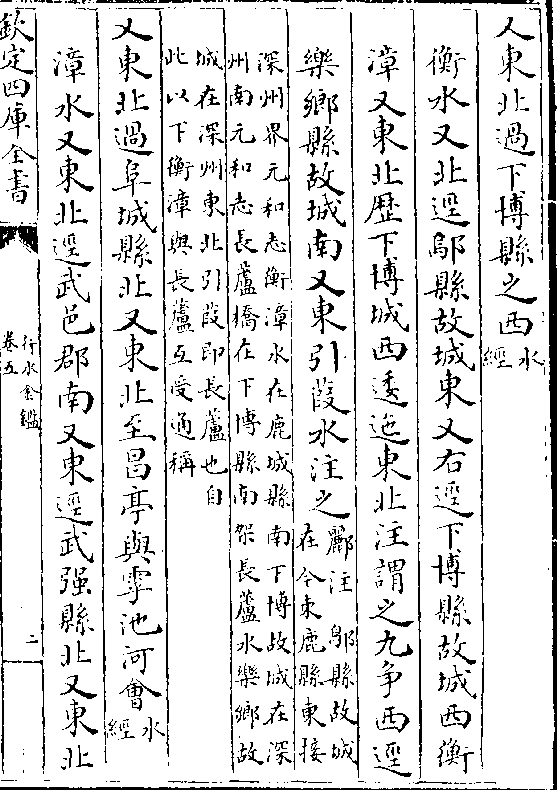 又東北過下博縣之西水經
衡水又北逕鄔縣故城東又右逕下博縣故城西衡
漳又東北歷下博城西逶迤東北注謂之九争西逕
樂鄉縣故城南又東引葭水注之酈注 鄔縣故城在今束鹿縣東接
深州界元和志衡漳水在鹿城縣南下博故城在深
州南元和志長蘆橋在下博縣南架長蘆水樂鄉故
城在深州東北引葭即長蘆也自
此以下衡漳與長蘆互受通稱
又東北過阜城縣北又東北至昌亭與滹池河會水經
漳水又東北逕武邑郡南又東逕武强縣北又東北
欽定四庫全書
行水金鑑
卷五
二